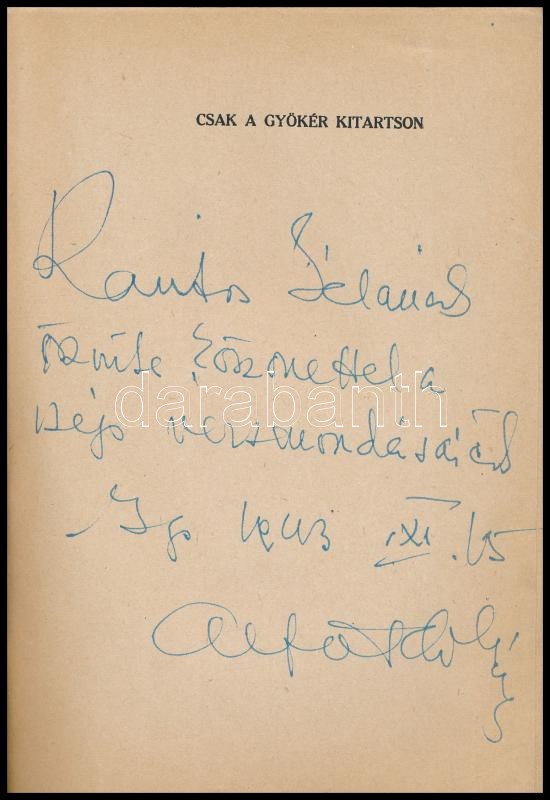 CSAK A GYÖKÉR KITARTSON
Kantos Bélának
őszinte köszönettel a
szép versmondásáért
Bp 1943 XI. 15
darabanth